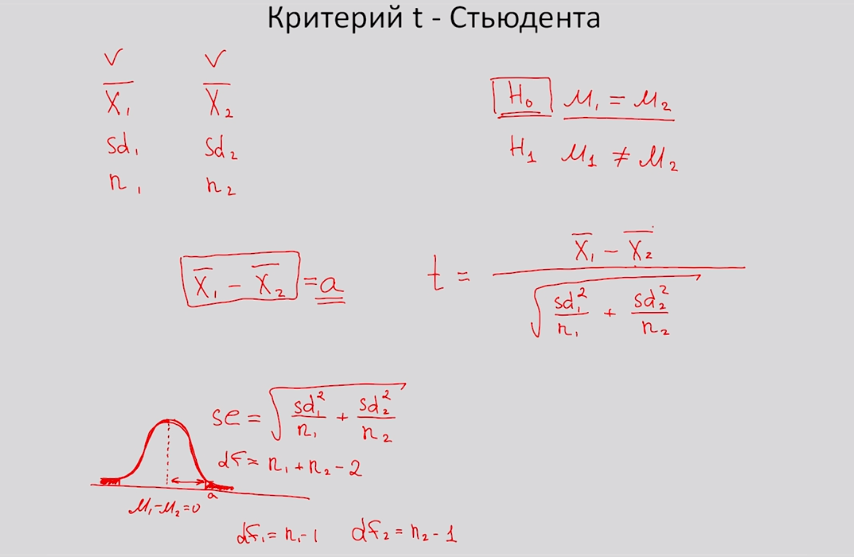 Критерий t - Стьюдента
V V
X̅₁ X̅₂
sd₁ sd₂
n₁ n₂
H₀ M₁ = M₂
H₁ M₁ ≠ M₂
X̅₁ - X̅₂ = a
t = (X̅₁ - X̅₂) / √(sd₁²/n₁ + sd₂²/n₂)
se = √(sd₁²/n₁ + sd₂²/n₂)
df = n₁ + n₂ - 2
a
M₁-M₂=0
df₁ = n₁-1 df₂ = n₂-1